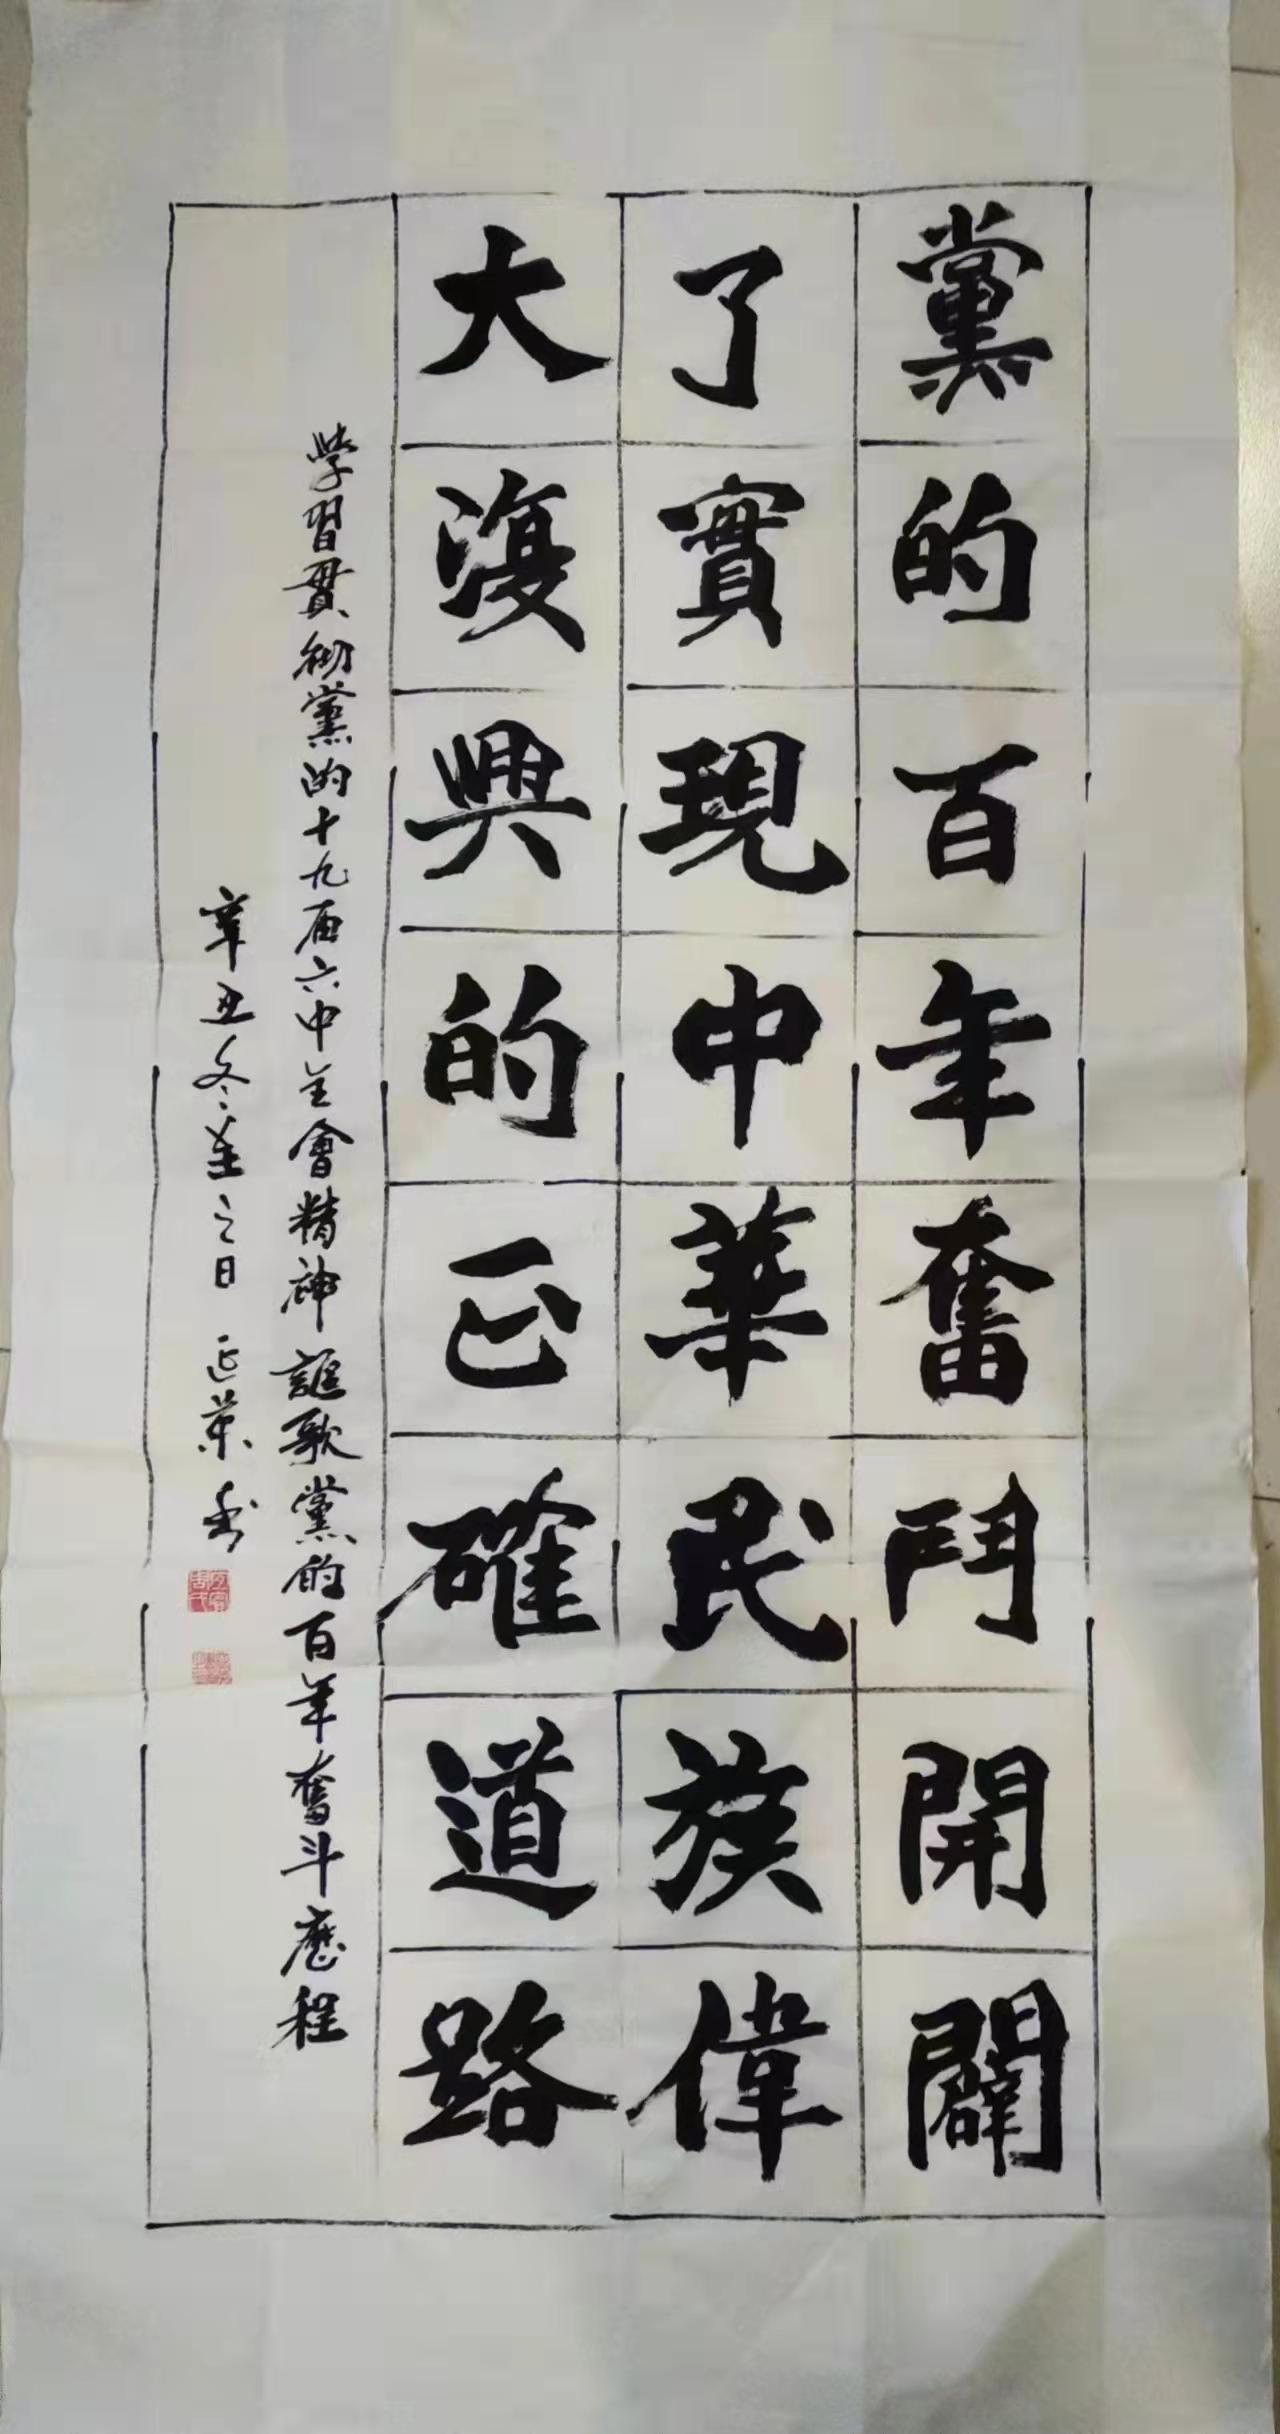 黨的百年奮鬥開闢
了實現中華民族偉
大復興的正確道路
學習貫彻黨的十九届六中全會精神 謳歌黨的百年奮斗歷程
辛丑冬至之日 正榮書